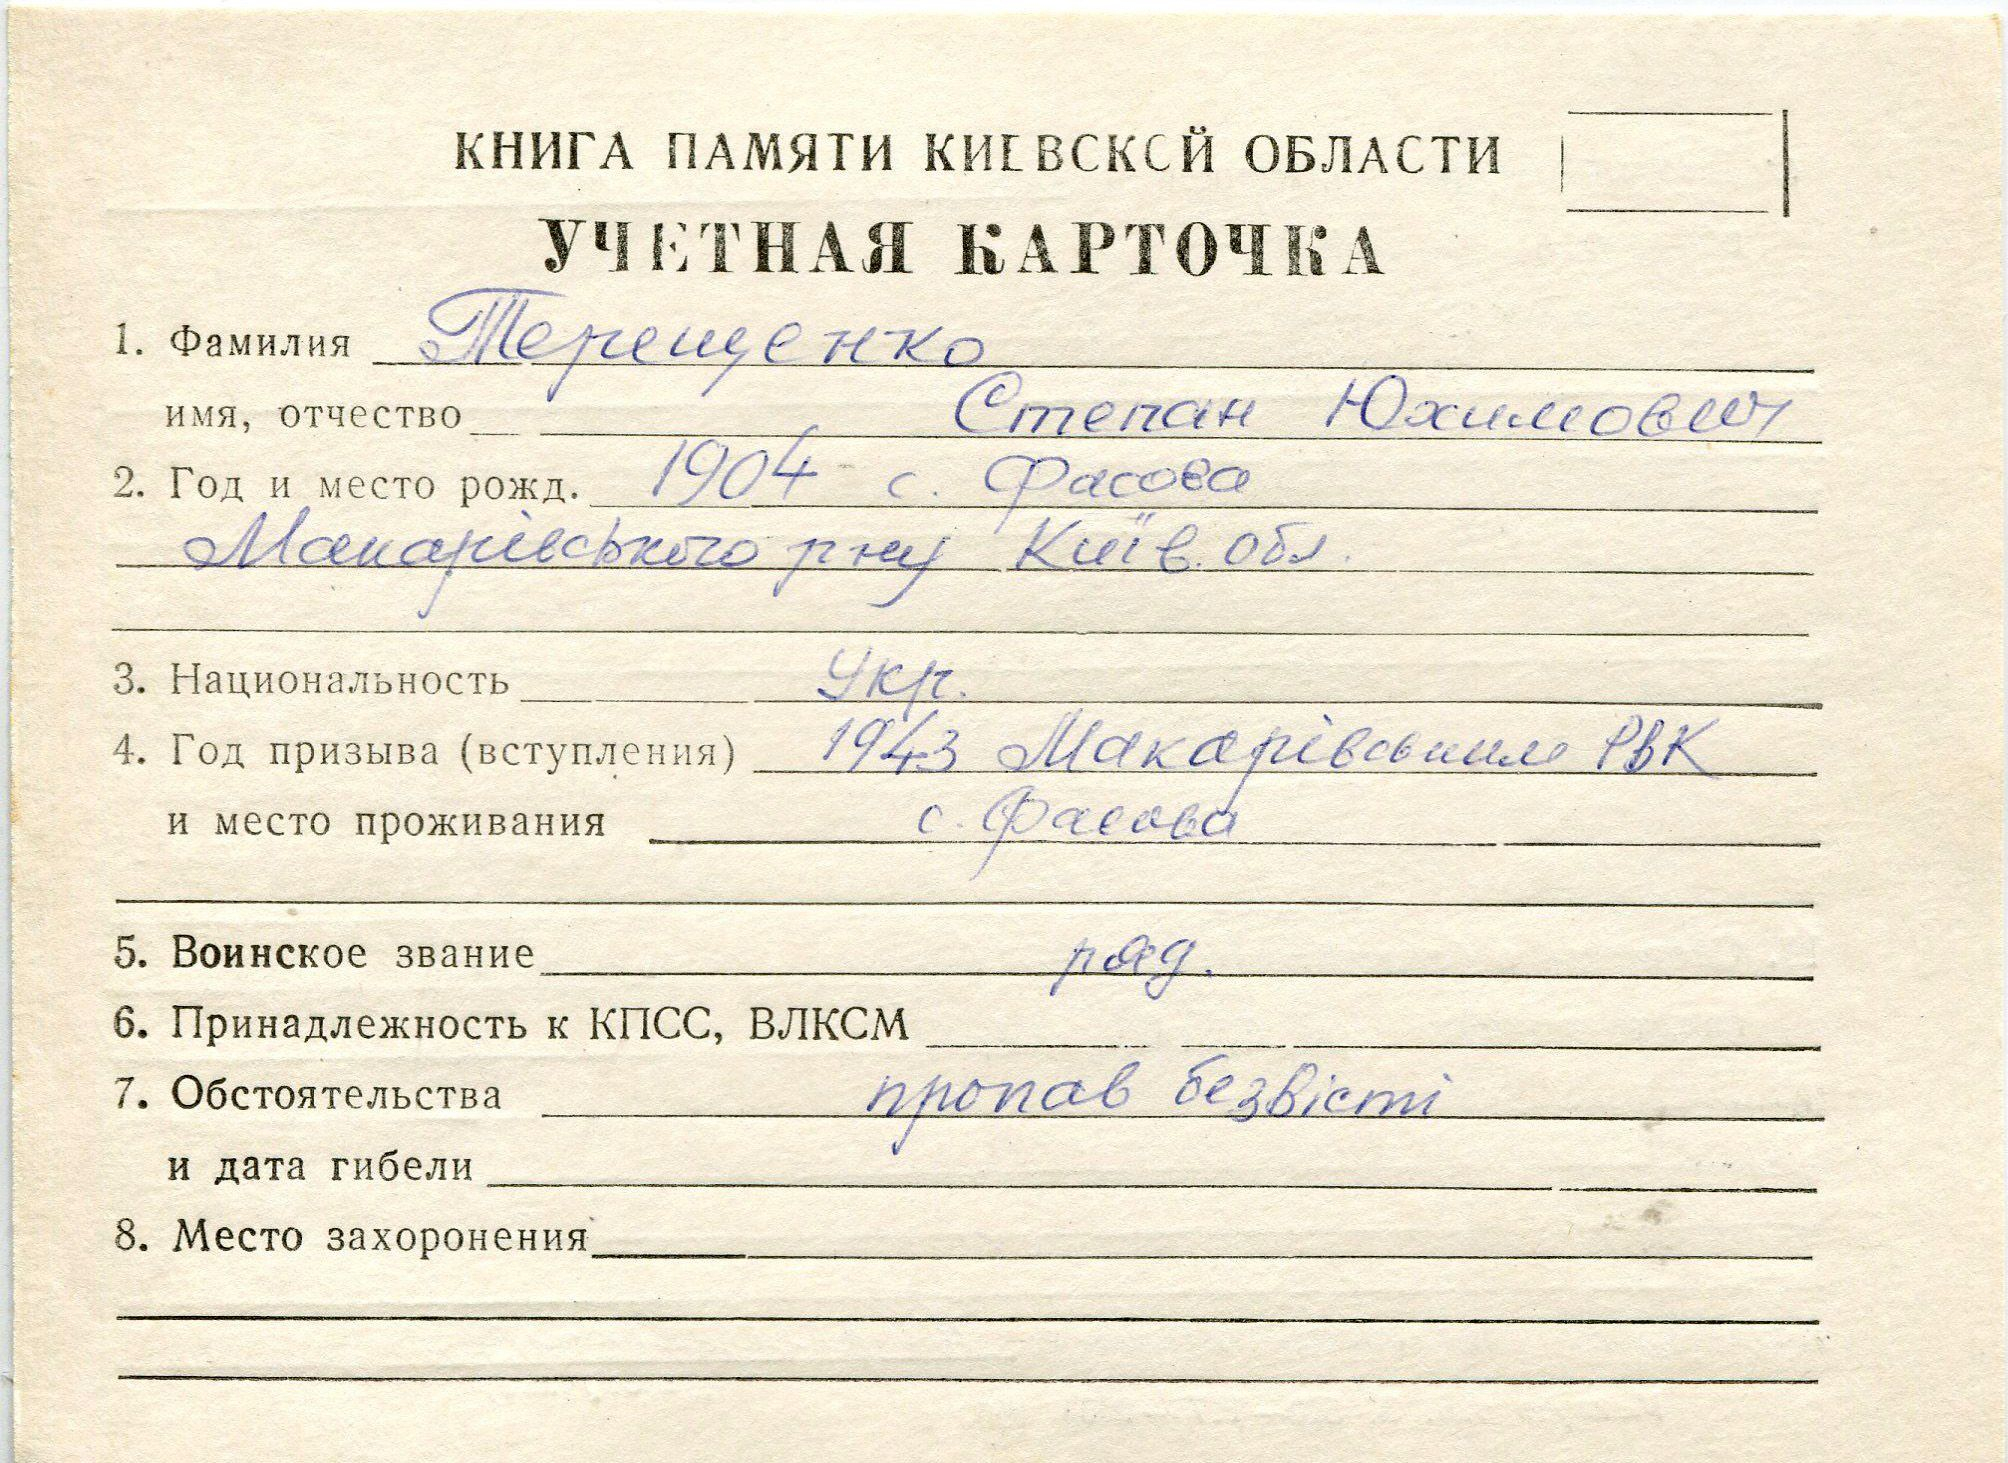 КНИГА ПАМЯТИ КИЕВСКОЙ ОБЛАСТИ
УЧЕТНАЯ КАРТОЧКА
1. Фамилия Терещенко
имя, отчество Степан Юхимович
2. Год и место рожд. 1904 с. Фасова
Макарівського р-ну Київ. обл.
3. Национальность Укр.
4. Год призыва (вступления) 1943 Макарівським РВК
и место проживания с. Фасова
5. Воинское звание ряд.
6. Принадлежность к КПСС, ВЛКСМ
7. Обстоятельства пропав безвісті
и дата гибели
8. Место захоронения